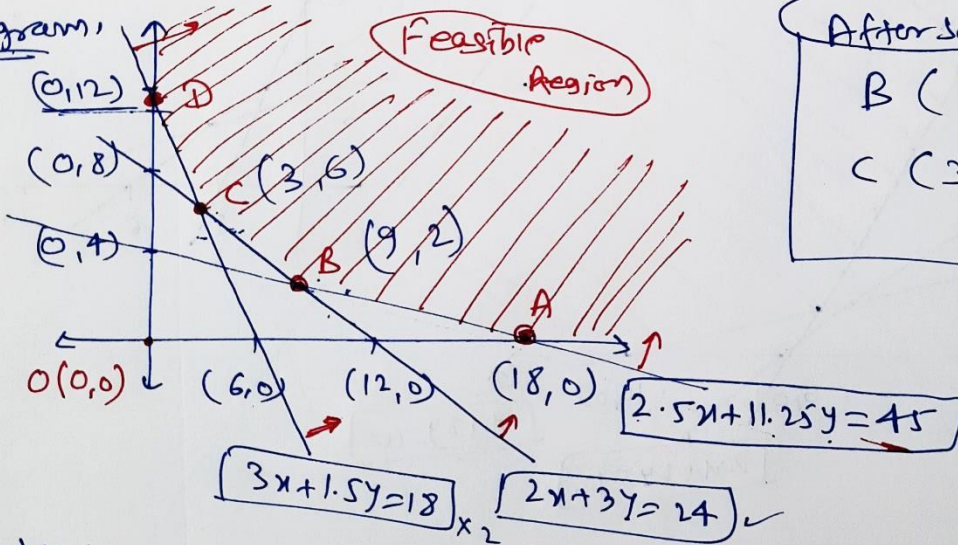 gram,
Feasible
Region
After
(0,12) D
B (
(0,8)
C (3,6)
C (3
(0,4)
B (9,2)
A
O(0,0)
(6,0)
(12,0)
(18,0)
2.5x+11.25y=45
3x+1.5y=18 x2
2x+3y=24 ✓